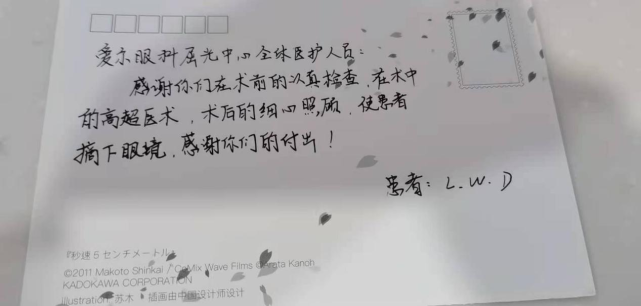 爱尔眼科屈光中心全体医护人员：
感谢你们在术前的认真检查，在术中
的高超医术，术后的细心照顾，使患者
摘下眼境，感谢你们的付出！
患者：L.W.D
『秒速5センチメートル』
©2011 Makoto Shinkai / CoMix Wave Films ©Yukita Kanoh
KADOKAWA CORPORATION
illustration 苏木 插画由中国设计师设计